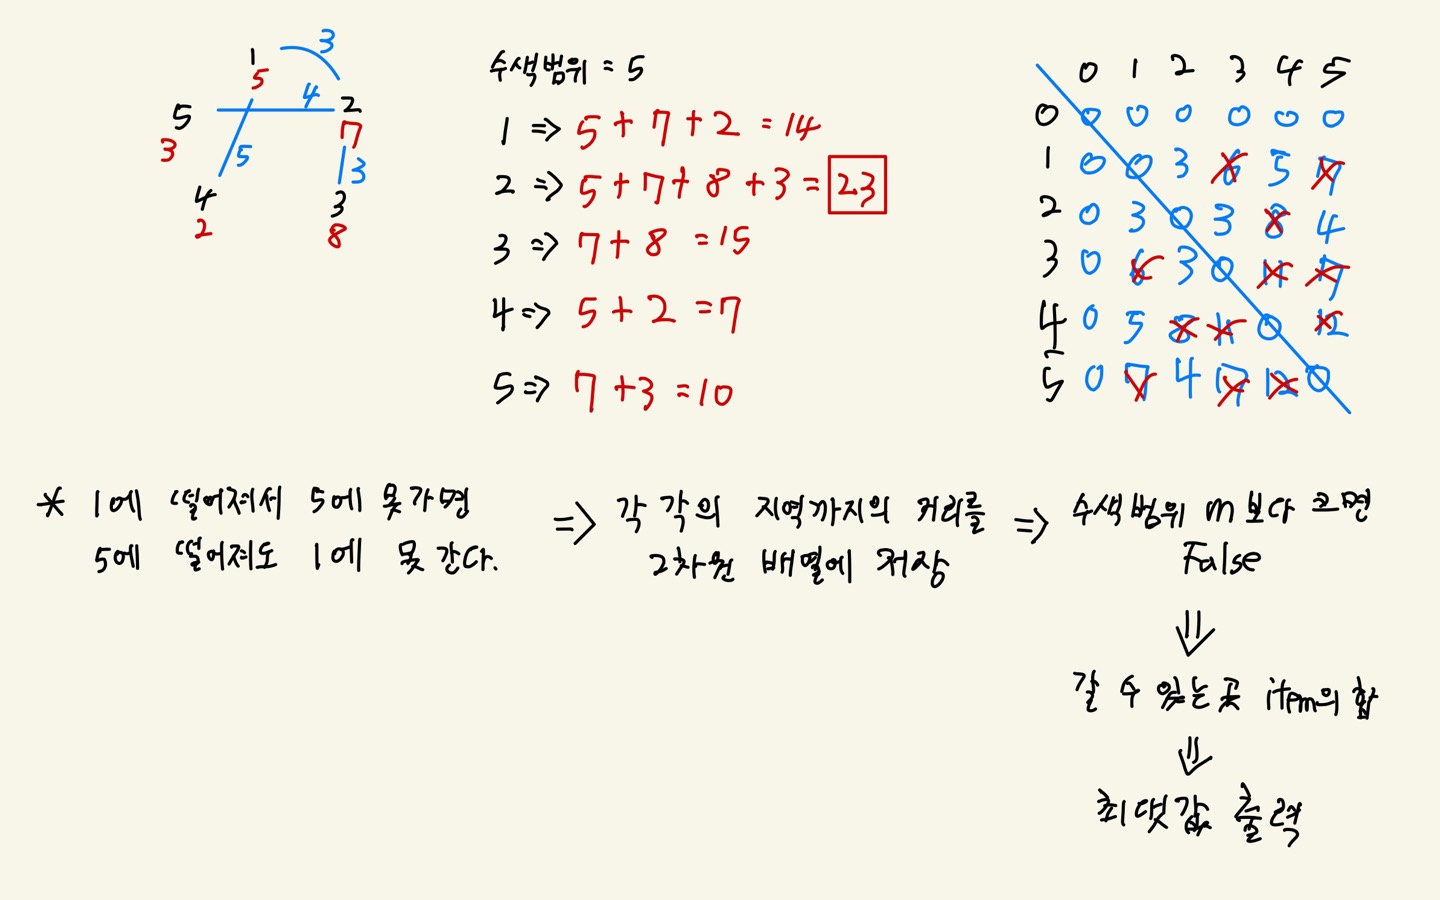 1
3
5
4
2
5
7
3
5
3
4
3
2
8
수색범위 = 5
1 => 5 + 7 + 2 = 14
2 => 5 + 7 + 8 + 3 = 23
3 => 7 + 8 = 15
4 => 5 + 2 = 7
5 => 7 + 3 = 10
0 1 2 3 4 5
0 0 0 0 0 0 0
1 0 0 3 6 5 7
2 0 3 0 3 8 4
3 0 6 3 0 11 7
4 0 5 8 11 0 12
5 0 7 4 7 12 0
* 1에 떨어져서 5에 못가면
5에 떨어져도 1에 못 간다.
=> 각 각의 지역까지의 거리를
2차원 배열에 저장
=> 수색범위 m 보다 크면
False
⇓
갈 수 있는 곳 item의 합
⇓
최댓값 출력